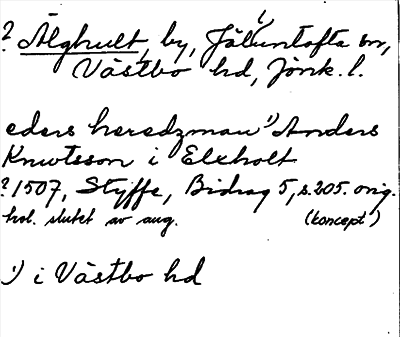 ? Älghult, by, Jäluntofta sn,
Västbo hd, Jönk. l.
eders heredzman 1) Anders
Knutsson i Elxholt
? 1507, Styffe, Bidrag 5, s. 205. orig.
hol. slutet av aug. (koncept)
1) i Västbo hd